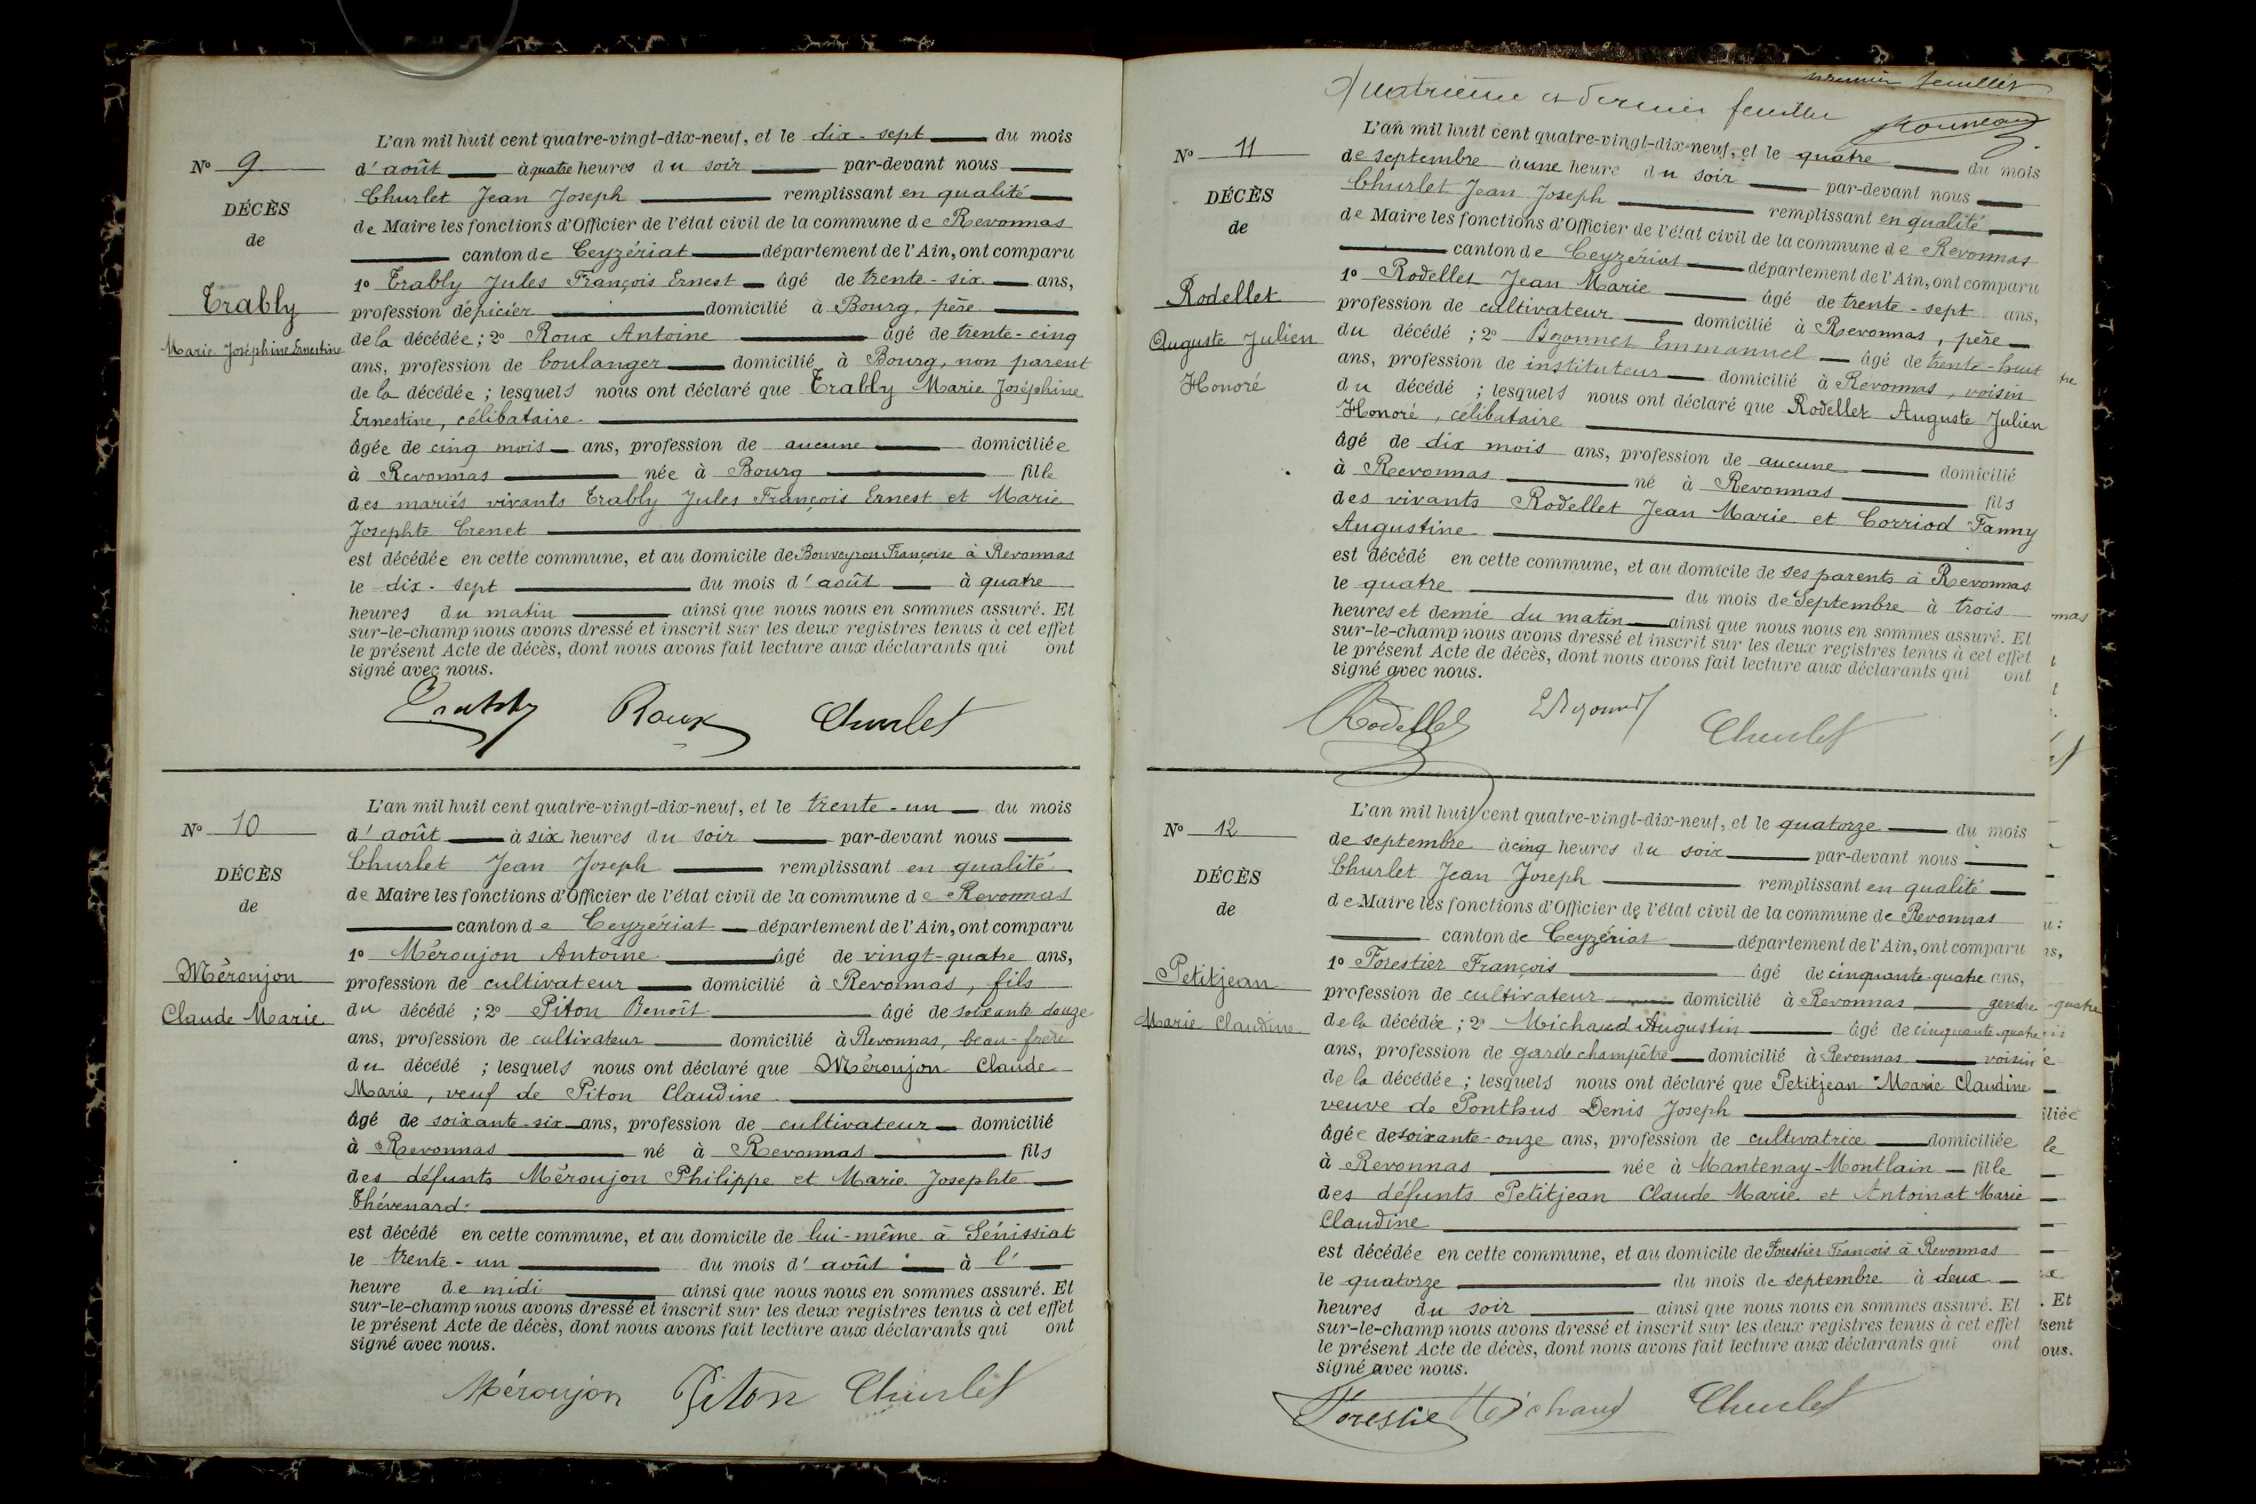 L'an mil huit cent quatre-vingt-dix-neuf, et le dix-sept du mois
d'août à quatre heures du soir par-devant nous
Churlet Jean Joseph remplissant en qualité
de Maire les fonctions d'Officier de l'état civil de la commune de Revonnas
canton de Ceyzériat département de l'Ain, ont comparu
1º Trably Jules François Ernest âgé de trente-six ans,
profession d'épicier domicilié à Bourg, père
de la décédée ; 2º Roux Antoine âgé de trente-cinq
ans, profession de boulanger domicilié à Bourg, non parent
de la décédée ; lesquels nous ont déclaré que Trably Marie Joséphine
Ernestine, célibataire
âgée de cinq mois ans, profession de aucune domiciliée
à Revonnas née à Bourg fille
des mariés vivants Trably Jules François Ernest et Marie
Josephte Crenet
est décédée en cette commune, et au domicile de Bouveyron Françoise à Revonnas
le dix-sept du mois d'août à quatre
heures du matin ainsi que nous nous en sommes assuré. Et
sur-le-champ nous avons dressé et inscrit sur les deux registres tenus à cet effet
le présent Acte de décès, dont nous avons fait lecture aux déclarants qui ont
signé avec nous.
Nº 9
DÉCÈS
de
Trably
Marie Joséphine Ernestine
Trably Roux Churlet
L'an mil huit cent quatre-vingt-dix-neuf, et le trente-un du mois
d'août à six heures du soir par-devant nous
Churlet Jean Joseph remplissant en qualité
de Maire les fonctions d'Officier de l'état civil de la commune de Revonnas
canton de Ceyzériat département de l'Ain, ont comparu
1º Méroujon Antoine âgé de vingt-quatre ans,
profession de cultivateur domicilié à Revonnas, fils
du décédé ; 2º Piton Benoît âgé de soixante douze
ans, profession de cultivateur domicilié à Revonnas, beau-frère
du décédé ; lesquels nous ont déclaré que Méroujon Claude
Marie, veuf de Piton Claudine
âgé de soixante-six ans, profession de cultivateur domicilié
à Revonnas né à Revonnas fils
des défunts Méroujon Philippe et Marie Josephte
Thévenard
est décédé en cette commune, et au domicile de lui-même à Sénissiat
le trente-un du mois d'août à l'
heure de midi ainsi que nous nous en sommes assuré. Et
sur-le-champ nous avons dressé et inscrit sur les deux registres tenus à cet effet
le présent Acte de décès, dont nous avons fait lecture aux déclarants qui ont
signé avec nous.
Nº 10
DÉCÈS
de
Méroujon
Claude Marie
Méroujon Piton Churlet
premier feuillet
Quatrième et dernier feuillet
L'an mil huit cent quatre-vingt-dix-neuf, et le quatre du mois
de septembre à une heure du soir par-devant nous
Churlet Jean Joseph remplissant en qualité
de Maire les fonctions d'Officier de l'état civil de la commune de Revonnas
canton de Ceyzériat département de l'Ain, ont comparu
1º Rodellet Jean Marie âgé de trente-sept ans,
profession de cultivateur domicilié à Revonnas, père
du décédé ; 2º Bozonnet Emmanuel âgé de trente-huit
ans, profession de instituteur domicilié à Revonnas, voisin
du décédé ; lesquels nous ont déclaré que Rodellet Auguste Julien
Honoré, célibataire
âgé de dix mois ans, profession de aucune domicilié
à Revonnas né à Revonnas fils
des vivants Rodellet Jean Marie et Corriod Fanny
Augustine
est décédé en cette commune, et au domicile de ses parents à Revonnas
le quatre du mois de Septembre à trois
heures et demie du matin ainsi que nous nous en sommes assuré. Et
sur-le-champ nous avons dressé et inscrit sur les deux registres tenus à cet effet
le présent Acte de décès, dont nous avons fait lecture aux déclarants qui ont
signé avec nous.
Nº 11
DÉCÈS
de
Rodellet
Auguste Julien
Honoré
Rodellet Churlet
L'an mil huit cent quatre-vingt-dix-neuf, et le quatorze du mois
de septembre à cinq heures du soir par-devant nous
Churlet Jean Joseph remplissant en qualité
de Maire les fonctions d'Officier de l'état civil de la commune de Revonnas
canton de Ceyzériat département de l'Ain, ont comparu
1º Forestier François âgé de cinquante-quatre ans,
profession de cultivateur domicilié à Revonnas gendre
de la décédée ; 2º Michaud Augustin âgé de cinquante-quatre
ans, profession de garde champêtre domicilié à Revonnas voisin
de la décédée ; lesquels nous ont déclaré que Petitjean Marie Claudine
veuve de Ponthus Denis Joseph
âgée de soixante-onze ans, profession de cultivatrice domiciliée
à Revonnas née à Mantenay-Montlain fille
des défunts Petitjean Claude Marie et Antoinat Marie
Claudine
est décédée en cette commune, et au domicile de Forestier François à Revonnas
le quatorze du mois de septembre à deux
heures du soir ainsi que nous nous en sommes assuré. Et
sur-le-champ nous avons dressé et inscrit sur les deux registres tenus à cet effet
le présent Acte de décès, dont nous avons fait lecture aux déclarants qui ont
signé avec nous.
Nº 12
DÉCÈS
de
Petitjean
Marie Claudine
Forestier Michaud Churlet